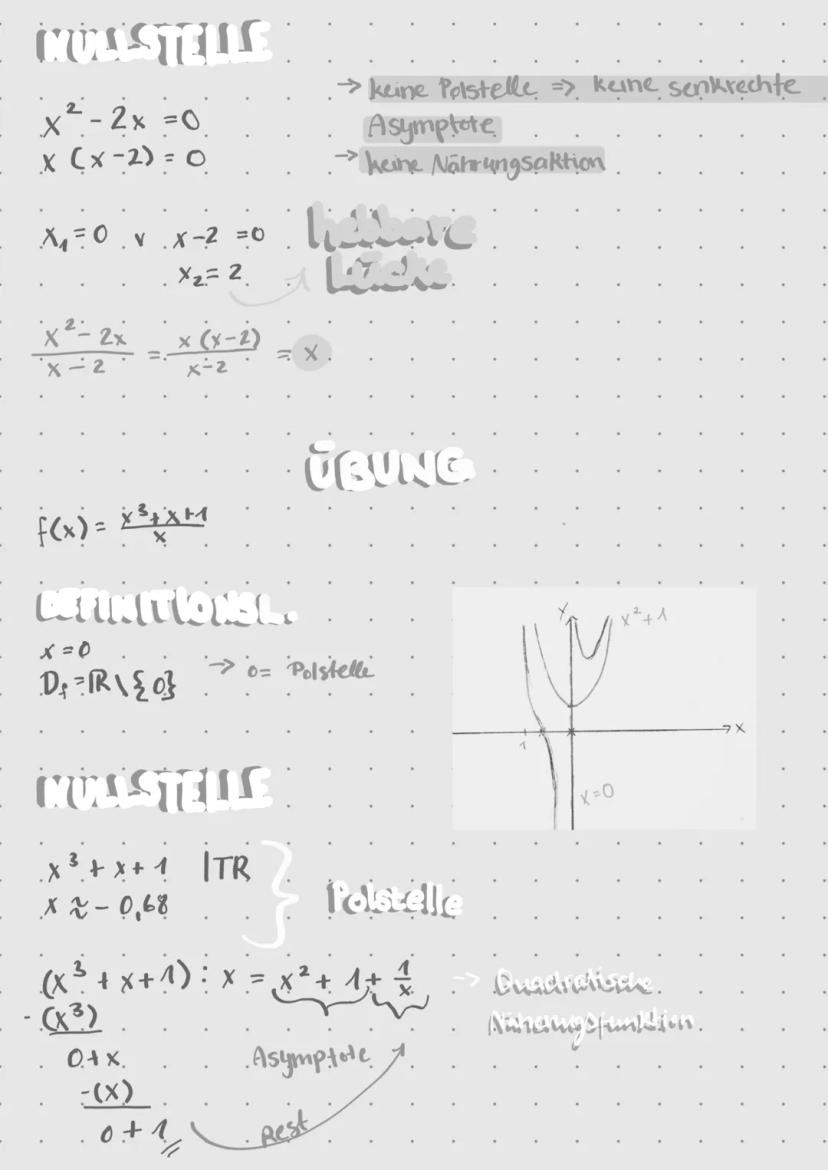 NULLSTELLE
→ keine Polstelle => keine senkrechte
Asymptote
→ keine Nährungsaktion
x² - 2x = 0
x (x-2) = 0
x₁ = 0 v x-2 = 0
x₂ = 2
hebbare
Lücke
x² - 2x / x - 2 = x (x-2) / x-2 = x
ÜBUNG
f(x) = x³+x+1 / x
DEFINITIONSL.
x = 0
D_f = ℝ \ {0}
→ 0 = Polstelle
y
x² + 1
x
1
x=0
NULLSTELLE
x³ + x + 1 | TR
x ≈ - 0,68
Polstelle
(x³ + x + 1) : x = x² + 1 + 1/x
→ Quadratische
Näherungsfunktion
- (x³)
0 + x
Asymptote
-(x)
0 + 1
Rest